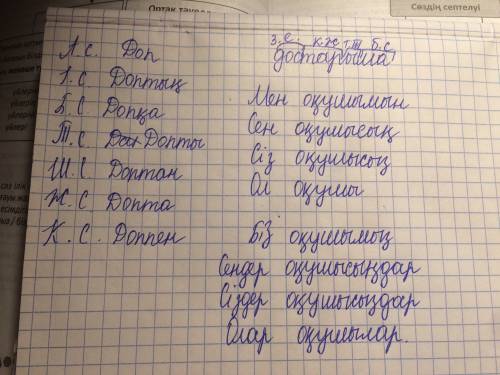 Ортақ тәуел
Сөздің септелуі
А.с. Доп
І.с. Доптың
Б.С Допқа
Т.С Допты
Ш.С. Доптан
Ж.С Допта
К.С. Доппен
з.е. к.ж т.ж б.с
достарыма
Мен оқушымын
Сен оқушысың
Сіз оқушысыз
Ол оқушы
Біз оқушымыз
Сендер оқушысыңдар
Сіздер оқушысыздар
Олар оқушылар.